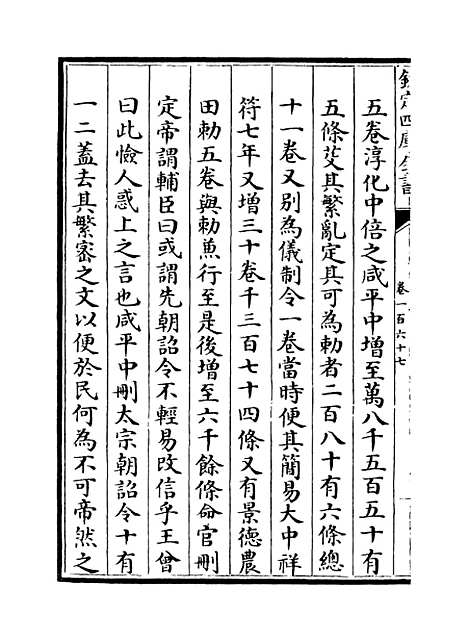 欽定四庫全書
卷一百六十七
五卷淳化中倍之咸平中增至萬八千五百五十有
五條芟其繁亂定其可為勅者二百八十有六條總
十一卷又别為儀制令一卷當時便其簡易大中祥
符七年又增三十卷千三百七十四條又有景徳農
田勅五卷與勅兼行至是後增至六千餘條命官刪
定帝謂輔臣曰或謂先朝詔令不輕易改信乎王曾
曰此憸人惑上之言也咸平中刪太宗朝詔令十有
一二蓋去其繁密之文以便於民何為不可帝然之